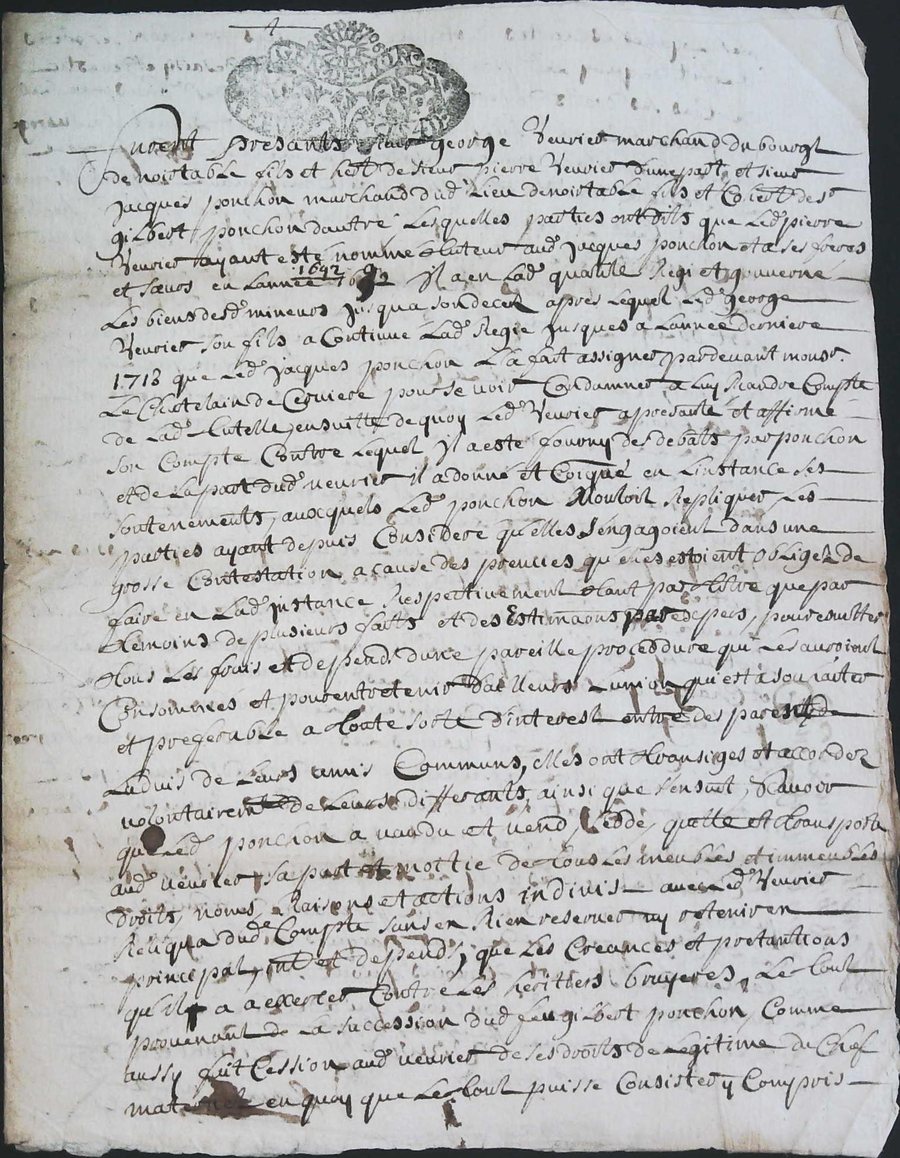 furent presants sieur george Veuvrier marchand du bourgt
de noirtable fils et hert. de sieur pierre Veuvrier d'une part, et sieur
Jacques ponchon marchand dud. Lieu de noirtable fils et Cohert. de sr.
gilbert ponchon dautre Lesquelles parties ont dits que Led. pierre
Veuvrier ayant esté nommé tuteur aud. Jacques ponchon et a ses freres
et sœurs en Lannee 1692 Il a en Lad. quallité Regi et gouverné
Les biens desd. mineurs jusqua son decex apres Lequel Led. george
Veuvrier son fils a Continué Lad. Regie jusques a Lannee derniere
1718 que Led. Jacques ponchon L'a fait assigner pardevant monsr.
Le Chatelain de Cerviere pour se voir Condamner a Luy Randre Compte
de Lad. tutelle, ensuitte de quoy Led. Veuvrier a presanté et affirmé
son Compte Contre Lequel Il a esté fourny des debatts par ponchon
et de La part dud. veuvrier il a donné et en Linstance ses
soutenements, auxquels Led. ponchon Vouloit Repliquer, Les
parties ayant depuis Consideré qu'elles s'engagoient dans une
grosse Contestation a cause des preuves qu'elles estoient obligez de
faire en Lad. jnstance Respectivement tant par tiltre que par
temoins de plusieurs faits et des Estimaons par expers, pour eviter
tous Les frais et depend. d'une pareille proceddure qui Les auroient
Consommées et pour entretenir d'ailleurs Lunion qui est a souhaiter
et preferable a toute sorte d'interest entre des parents de
Ladvis de Leurs amis Communs, elles ont transiges et accordez
volontairemt. de Leurs differants, ainsi que s'ensuit, Scavoir
que Led. ponchon a vandu et vend, Cedde, quitte et transporte
aud. veuvrier sa part et moitié de tous Les meubles et immeubles
Droits, noms, Raisons et actions indivis avec Led. Veuvrier
Reliqua dud. Compte sans en Rien reserver ny retenir en
principal, intt. et depend., que Les Creances et pretantions
qu'il a a exercer Contre Les heritiers bruyeres, Le tout
provenant de La succession dud. feu gilbert ponchon, Comme
aussy fait Cession aud. veuvrier de ses droits de Legitime du Chef
maternel en quoy que Le tout puisse Consister, y Compris